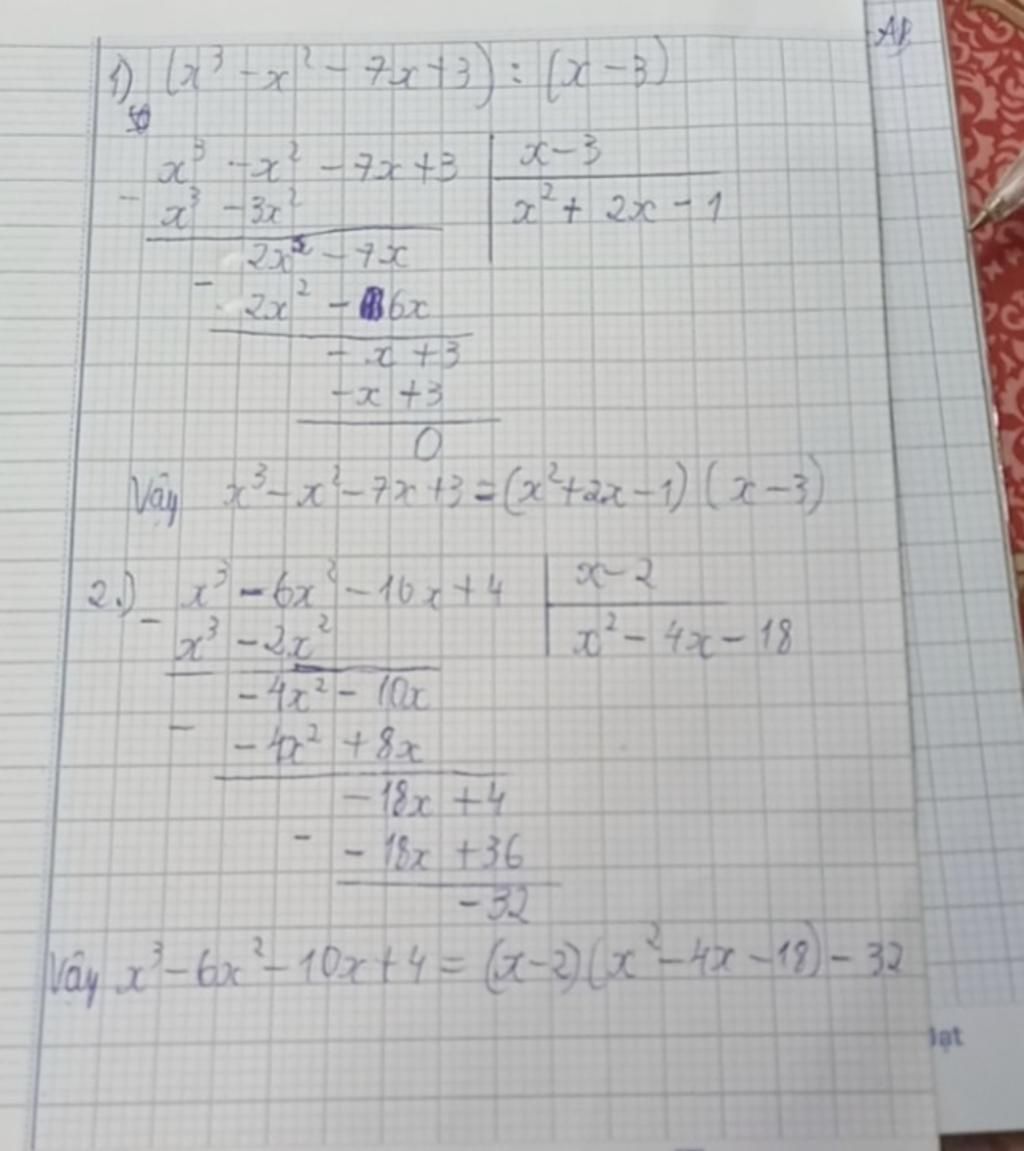 1) (x³ - x² - 7x + 3) : (x - 3)
x³ - x² - 7x + 3 | x - 3
- x³ - 3x² | x² + 2x - 1
2x² - 7x
- 2x² - 6x
- x + 3
- x + 3
0
Vậy x³ - x² - 7x + 3 = (x² + 2x - 1) (x - 3)
2.) - x³ - 6x² - 10x + 4 | x - 2
x³ - 2x² | x² - 4x - 18
- 4x² - 10x
- - 4x² + 8x
- 18x + 4
- - 18x + 36
- 32
Vậy x³ - 6x² - 10x + 4 = (x - 2) (x² - 4x - 18) - 32